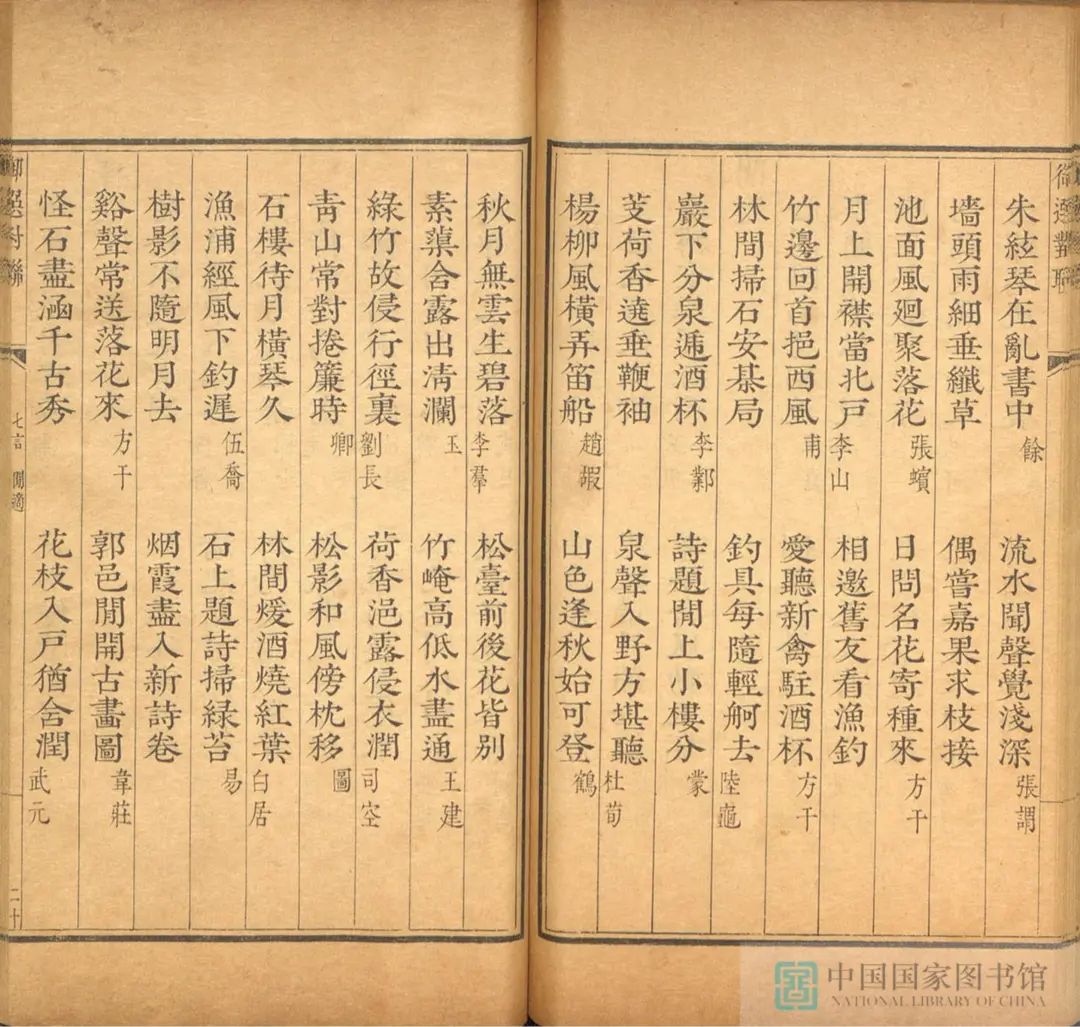 御選對聯
朱絃琴在亂書中 餘 流水聞聲覺淺深 張謂
墻頭雨細垂纖草 偶嘗嘉果求枝接
池面風廻聚落花 張蠙 日問名花寄種來 方干
月上開襟當北戶 李山 相邀舊友看漁釣
竹邊回首挹西風 甫 愛聽新禽駐酒杯 方干
林間掃石安棊局 釣具每隨輕舸去 陸龜
巖下分泉遞酒杯 李鄴 詩題閒上小樓分 蒙
芰荷香遶垂鞭袖 泉聲入野方堪聽 杜荀
楊柳風橫弄笛船 趙嘏 山色逢秋始可登 鶴
秋月無雲生碧落 李羣 松臺前後花皆別
素蕖含露出清瀾 玉 竹崦高低水盡通 王建
綠竹故侵行徑裏 劉長 荷香浥露侵衣潤 司空
靑山常對捲簾時 卿 松影和風傍枕移 圖
石樓待月橫琴久 林間煖酒燒紅葉 白居
漁浦經風下釣遲 伍喬 石上題詩掃緑苔 易
樹影不隨明月去 烟霞盡入新詩卷
谿聲常送落花來 方干 郭邑閒開古畫圖 韋莊
怪石盡涵千古秀 花枝入戸猶含潤 武元
御選對聯 七言 閒適 二十
中国国家图书馆
NATIONAL LIBRARY OF CHINA